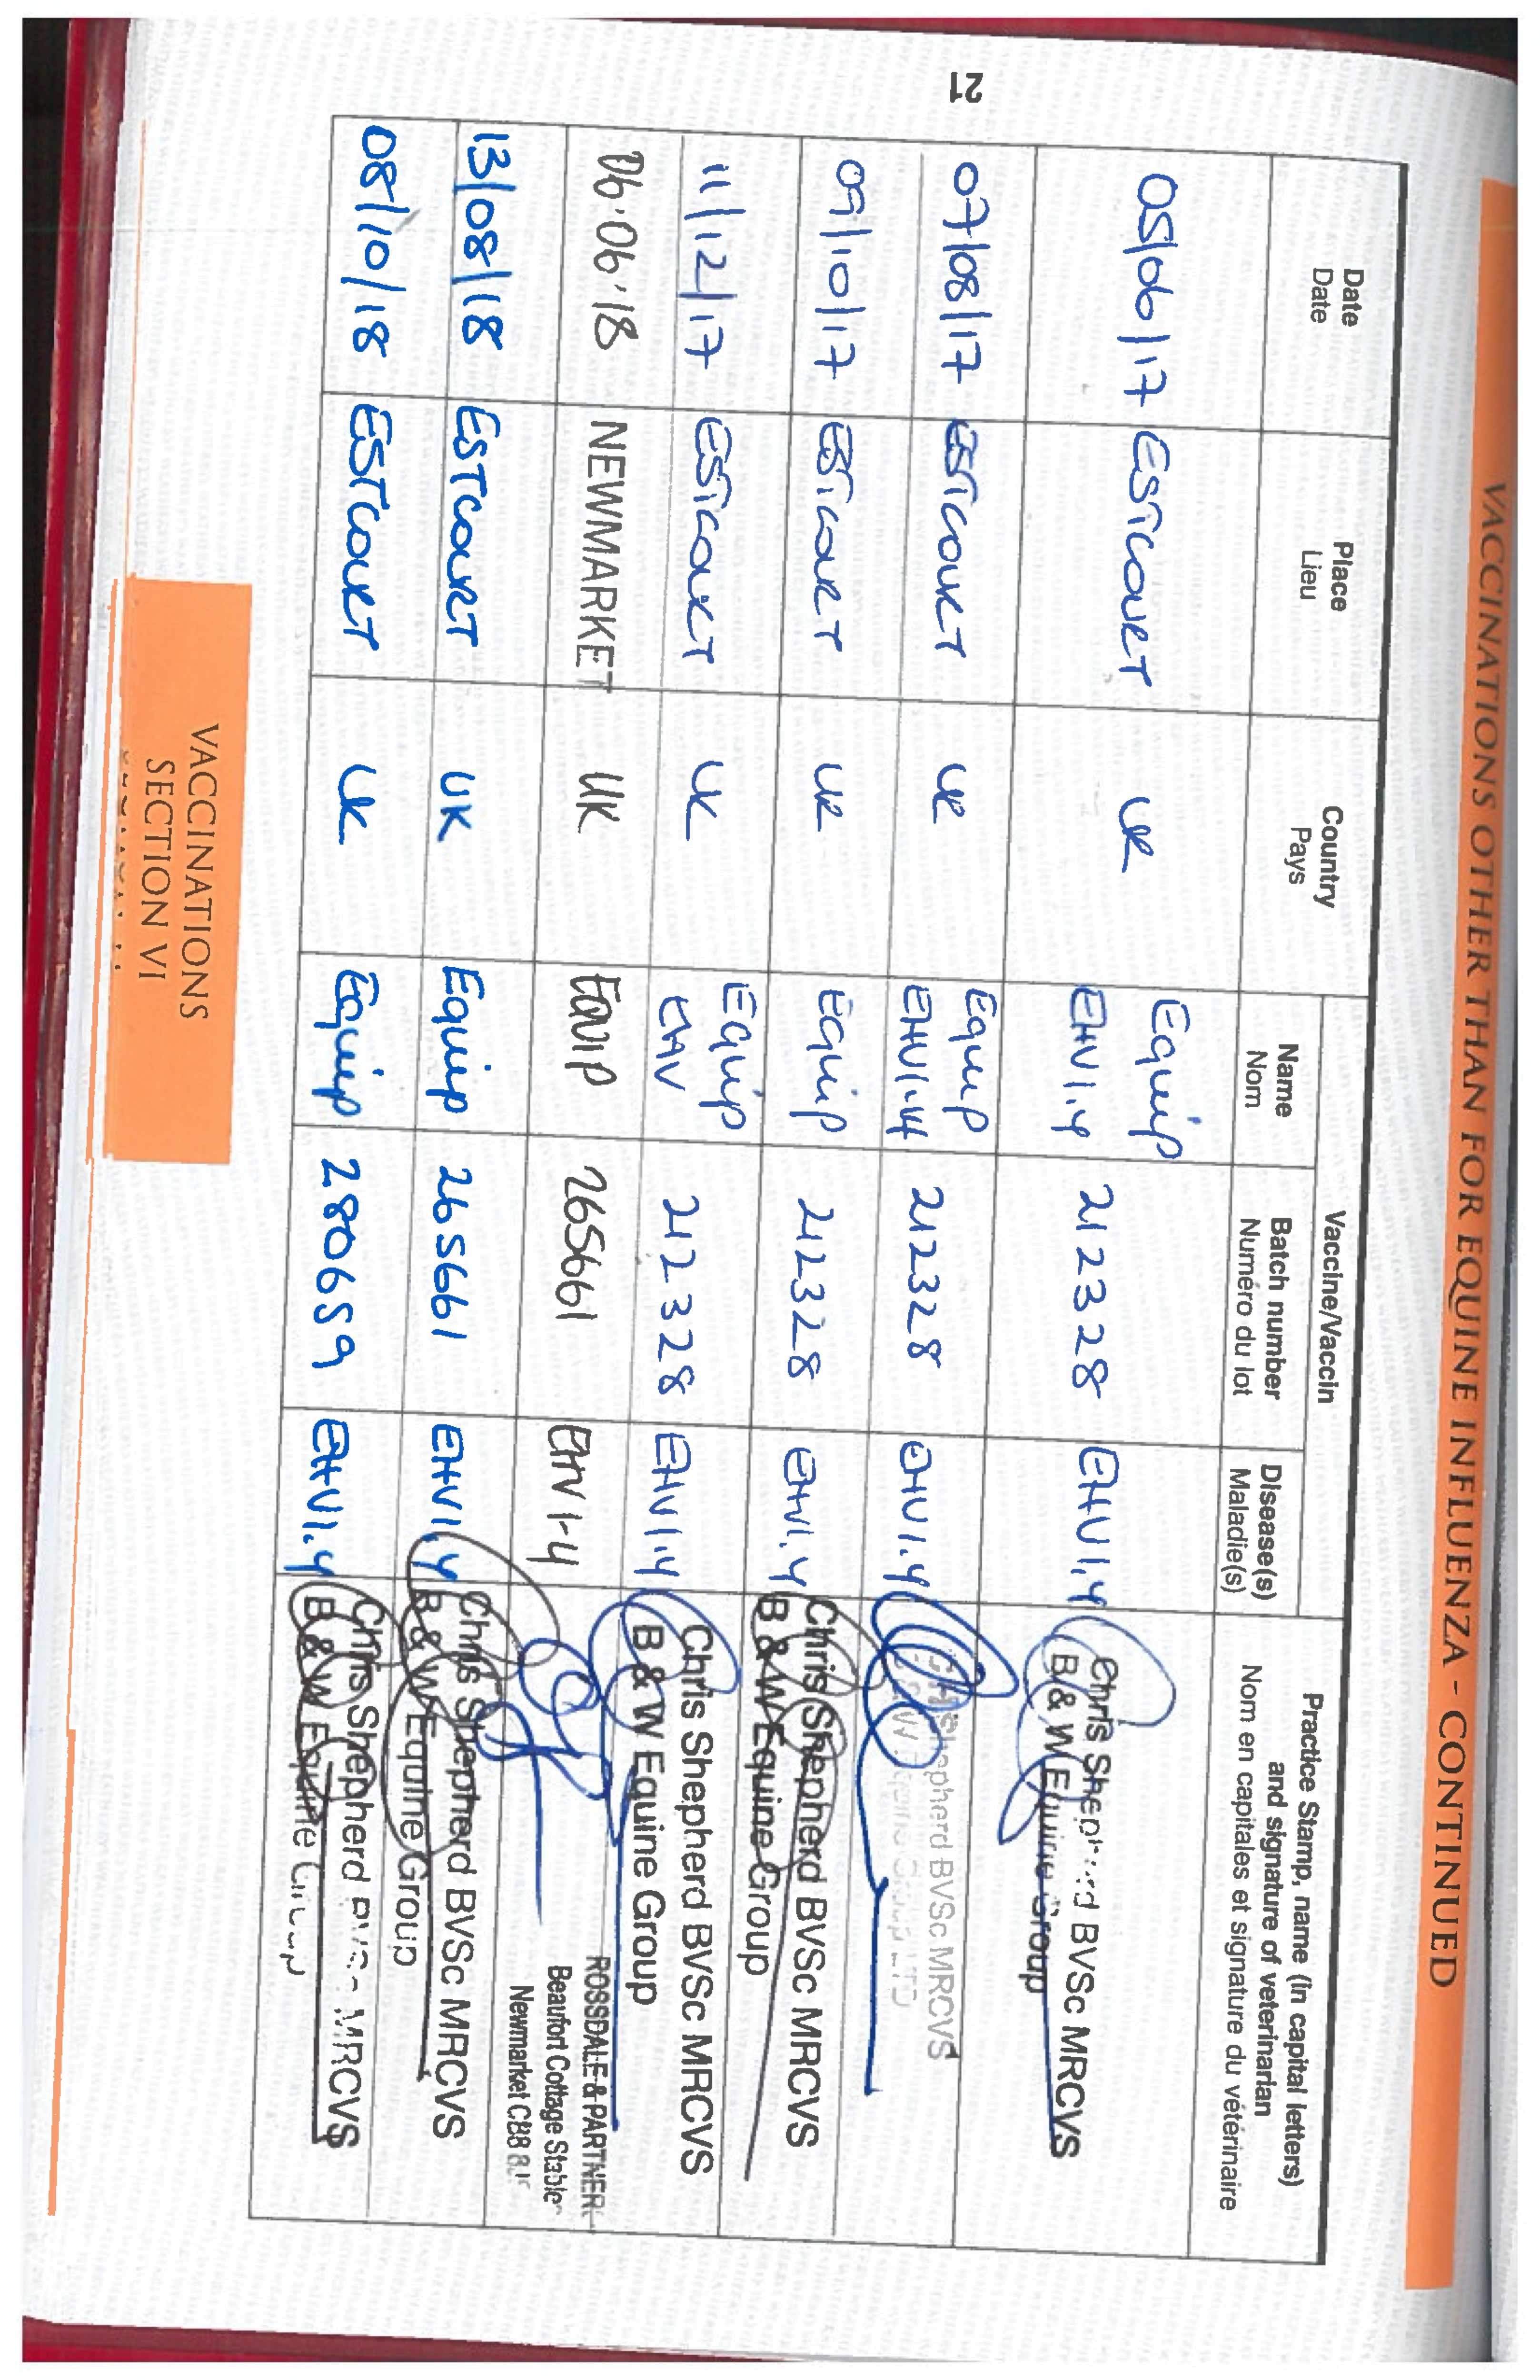 VACCINATIONS OTHER THAN FOR EQUINE INFLUENZA - CONTINUED
Date
Date
Place
Lieu
Country
Pays
Vaccine/Vaccin
Name
Nom
Batch number
Numéro du lot
Disease(s)
Maladie(s)
Practice Stamp, name (in capital letters)
and signature of veterinarian
Nom en capitales et signature du vétérinaire
05/06/17 ESTCOURT UK Equip EHV1.4 212328 EHV1.4
Chris Shepherd BVSc MRCVS
B & W Equine Group
07/08/17 ESTCOURT UK Equip EHV1.4 212328 EHV1.4
Shepherd BVSc MRCVS
09/10/17 ESTCOURT UK Equip 212328 EHV1.4
Chris Shepherd BVSc MRCVS
B & W Equine Group
11/12/17 ESTCOURT UK Equip EHV 212328 EHV1.4
Chris Shepherd BVSc MRCVS
B & W Equine Group
06.06.18 NEWMARKET UK EQUIP 265661 EHV 1-4
ROSSDALE & PARTNER
Beaufort Cottage Stable
Newmarket CB8
13/08/18 ESTCOURT UK Equip 265661 EHV1.4
Chris Shepherd BVSc MRCVS
B & W Equine Group
08/10/18 ESTCOURT UK Equip 280659 EHV1.4
Chris Shepherd BVSc MRCVS
B & W Equine Group
VACCINATIONS
SECTION VI
21